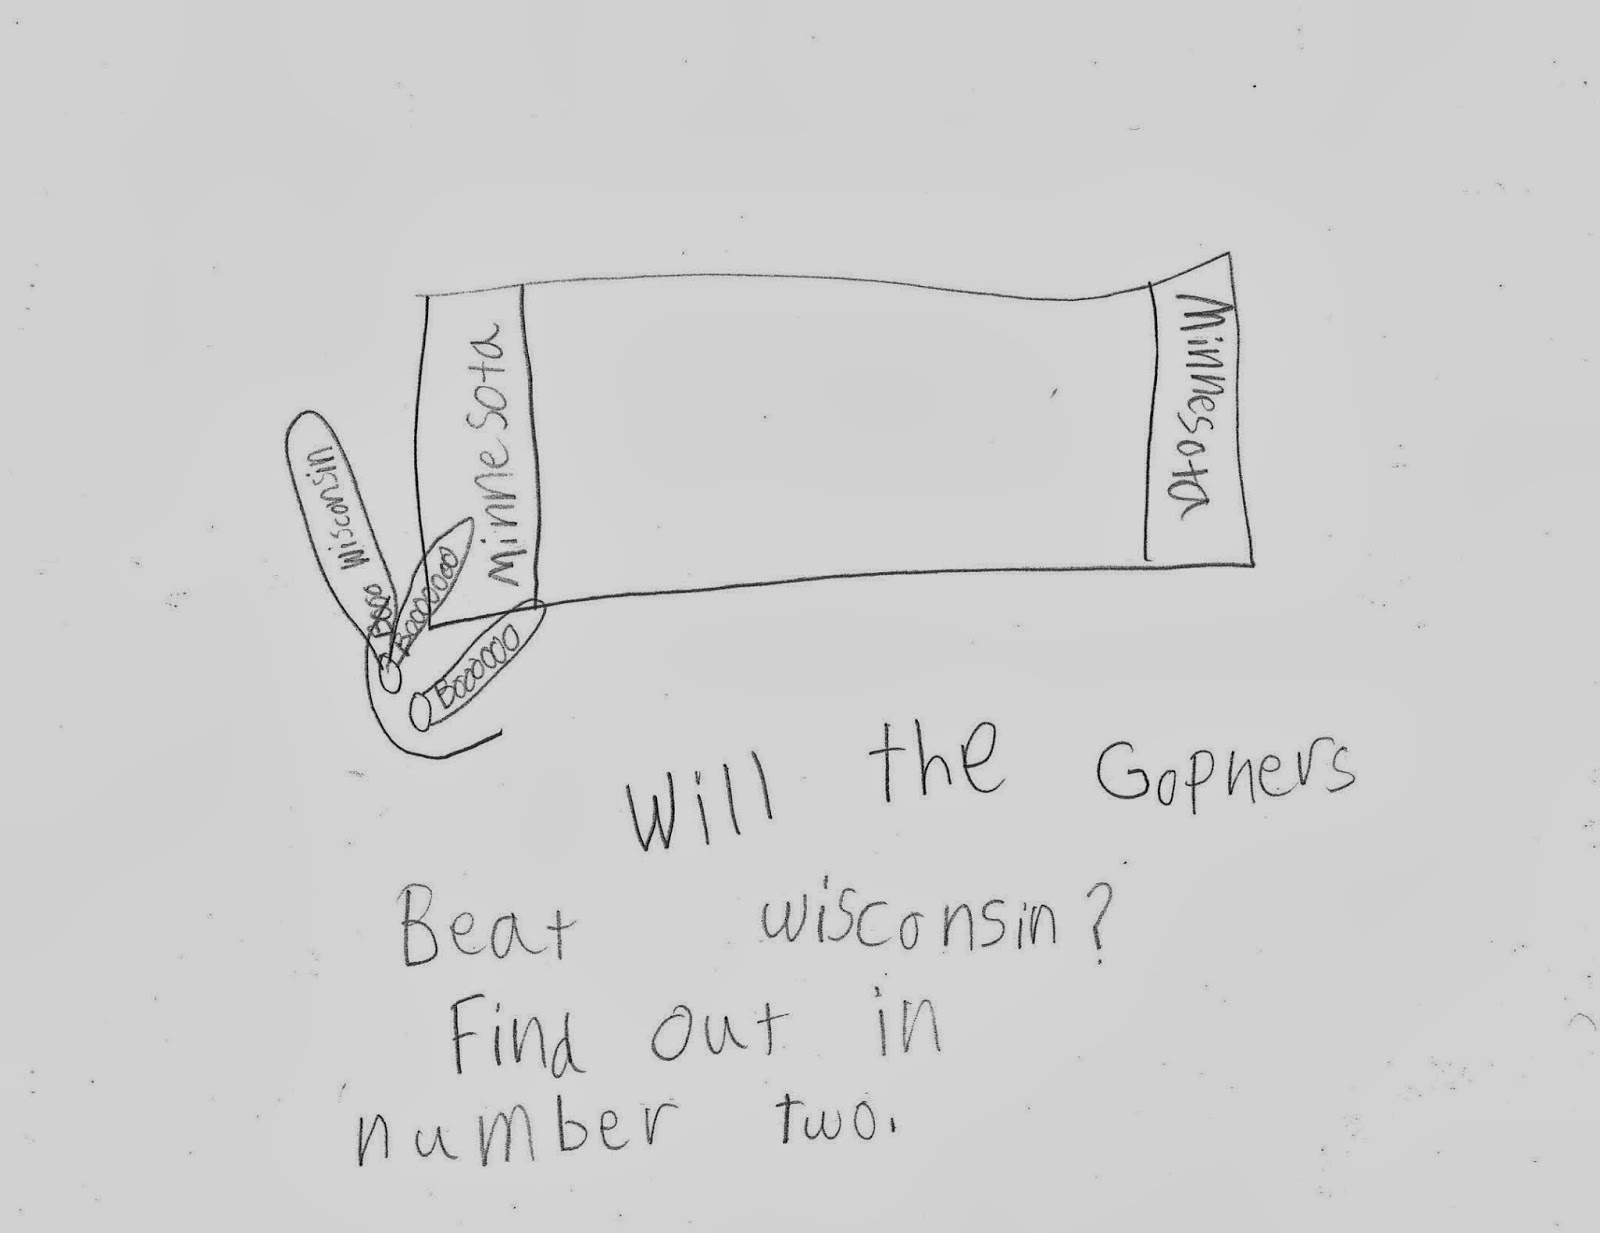 Minnesota
Minnesota
Booo Wisconsin
Booooooo
Boooooo
Will the Gophers
Beat wisconsin?
Find out in
number two.